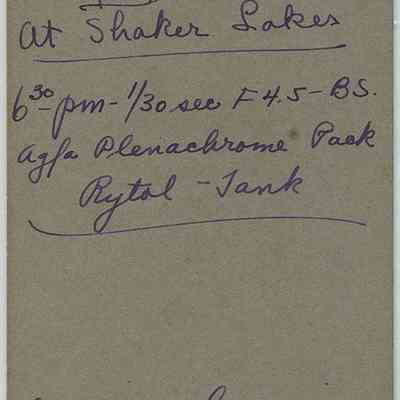 At Shaker Lakes
6³⁰ pm - 1/30 sec F 4.5 - B.S.
Agfa Plenachrome Pack
Rytol - Tank